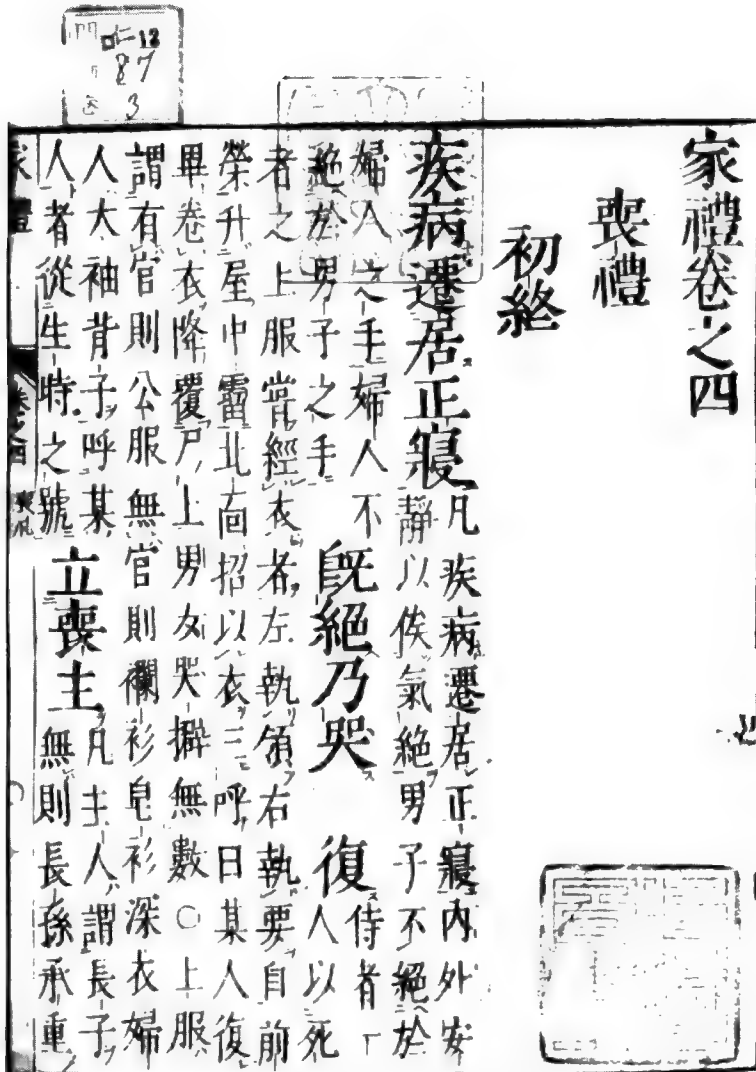 家禮卷之四
喪禮
初終
疾病遷居正寢凡疾病遷居正寢內外安
靜以俟氣絕男子不絕於
婦人之手婦人不
絕於男子之手
旣絕乃哭
復侍者一
人以死
者之上服嘗經衣者左執領右執要自前
榮升屋中霤北面招以衣三呼曰某人復
畢卷衣降覆尸上男女哭擗無數○上服
謂有官則公服無官則襴衫皂衫深衣婦
人大袖背子呼某
人者從生時之號
立喪主凡主人謂長子
無則長孫承重